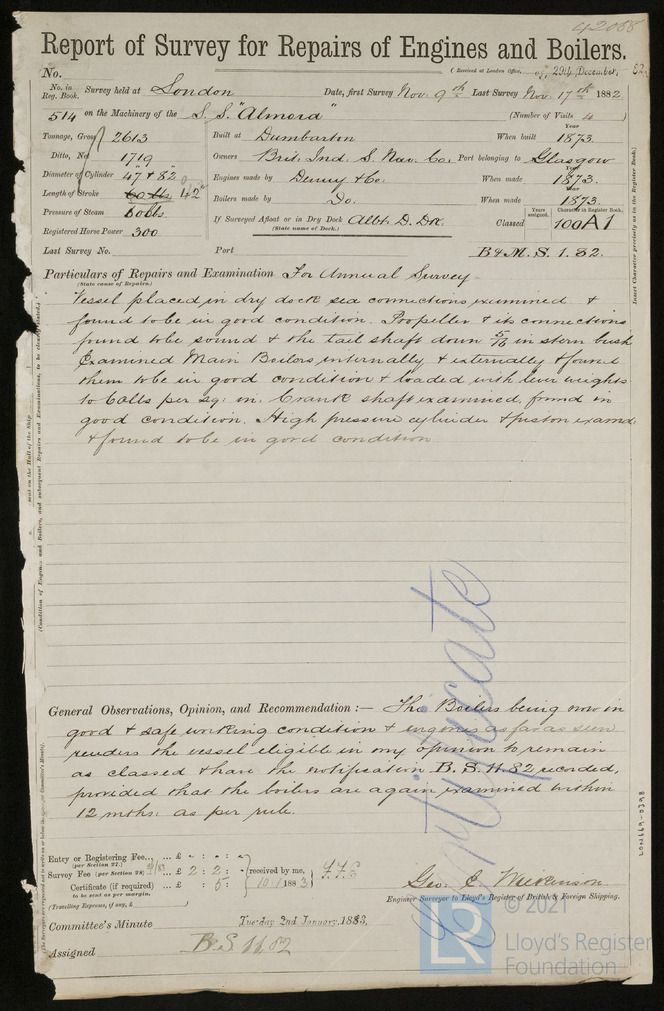 42088
Report of Survey for Repairs of Engines and Boilers.
No. (Received at London Office, 29th December, 82
No. in Reg. Book. Survey held at London Date, first Survey Nov. 9th Last Survey Nov. 17th 1882
514 on the Machinery of the S.S. "Almora" (Number of Visits 4 )
Tonnage, Gross 2613 Built at Dumbarton When built Year 1873.
Ditto, Net 1719 Owners Brit. Ind. S. Nav. Co. Port belonging to Glasgow
Diameter of Cylinder 47" & 82 Engines made by Denny & Co. When made Year 1873.
Length of Stroke 60 lbs 42" Boilers made by Do. When made Year 1873.
Pressure of Steam 60 lbs If Surveyed Afloat or in Dry Dock Albt. D. Dk. Classed Years assigned. Character in Register Book. 100 A1
(State name of Dock.)
Registered Horse Power 300
Last Survey No. Port B & M. S. 1. 82.
Particulars of Repairs and Examination For Annual Survey
(State cause of Repairs.)
Vessel placed in dry dock sea connections examined &
found to be in good condition. Propeller & its connections
found to be sound & the tail shaft down 5/16 in stern bush
Examined Main Boilers internally & externally & found
them to be in good condition & loaded with lever weights
to 60 lbs per sq: in. Crank shaft examined, found in
good condition. High pressure cylinder & piston examd
& found to be in good condition
General Observations, Opinion, and Recommendation :— The Boilers being now in
good & safe working condition & engines as far as seen
renders the vessel eligible in my opinion to remain
as classed & have the notification B. S. 11. 82 recorded,
provided that the boilers are again examined within
12 mths: as per rule.
Certificate
Entry or Registering Fee... ... £ " : " : "
(per Section 27.)
Survey Fee (per Section 28) ... £ 2 : 2 : " received by me,
Certificate (if required) ... £ " : 5 : 10/1 1883
to be sent as per margin.
(Travelling Expenses, if any, £ )
Engineer Surveyor to Lloyd's Register of British & Foreign Shipping.
Committee's Minute Tuesday 2nd January, 1883,
Assigned B.S. 11.82
LON669-0398
© 2021
LR
Lloyd's Register
Foundation